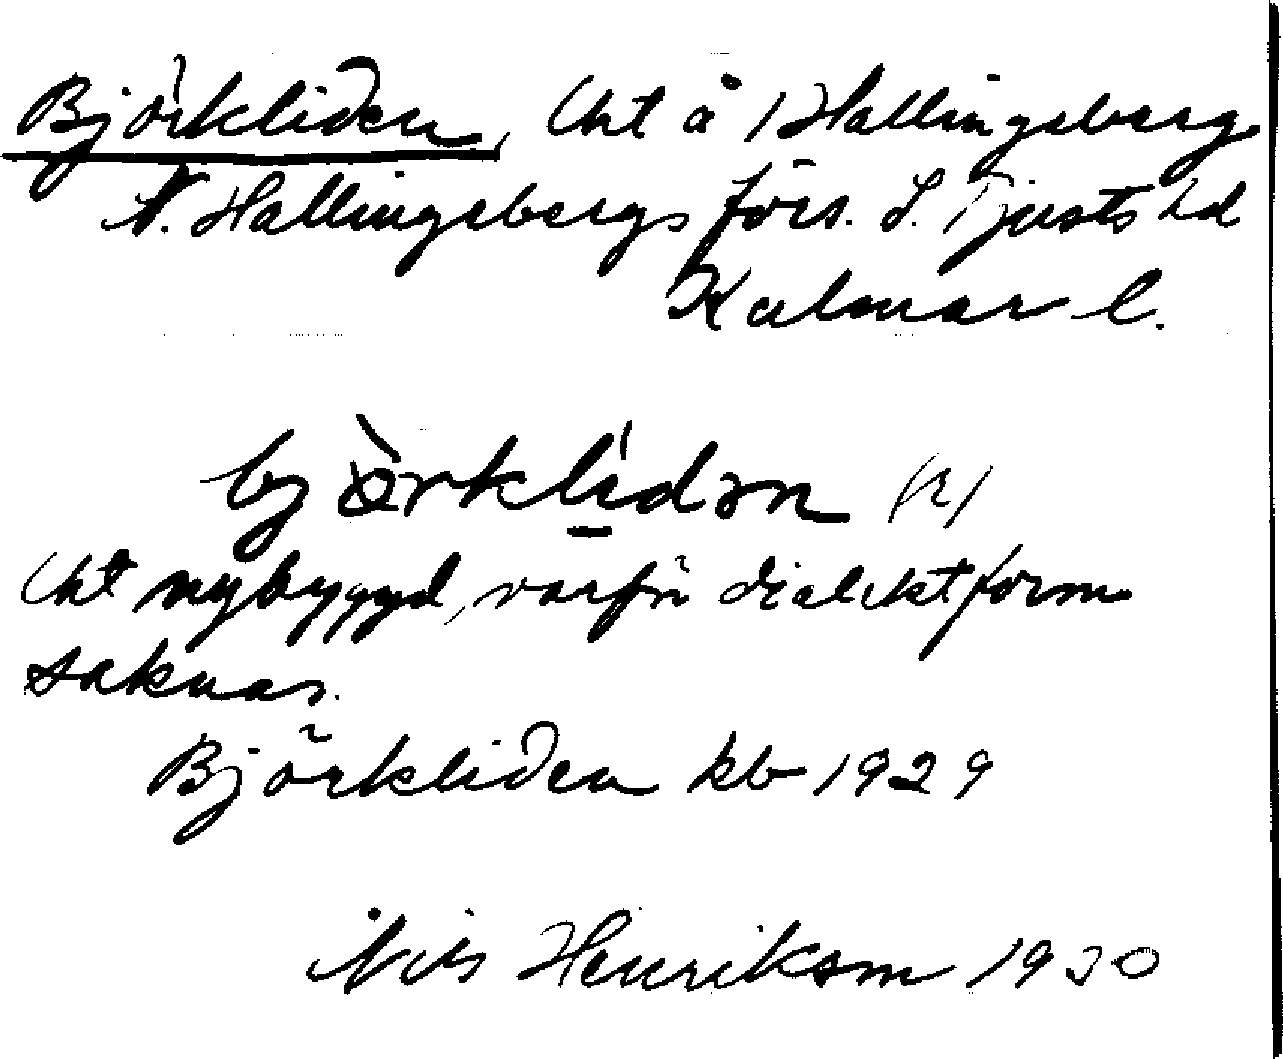 Björkliden, Lht å Hallingeberg
V. Hallingebergs förs. S. Tjusts hd
Kalmar l.
bjɵ̀rklídən (R)
Lht nybyggd, varför dialektform
saknas.
Björkliden kb 1929
Nils Henrikson 1930